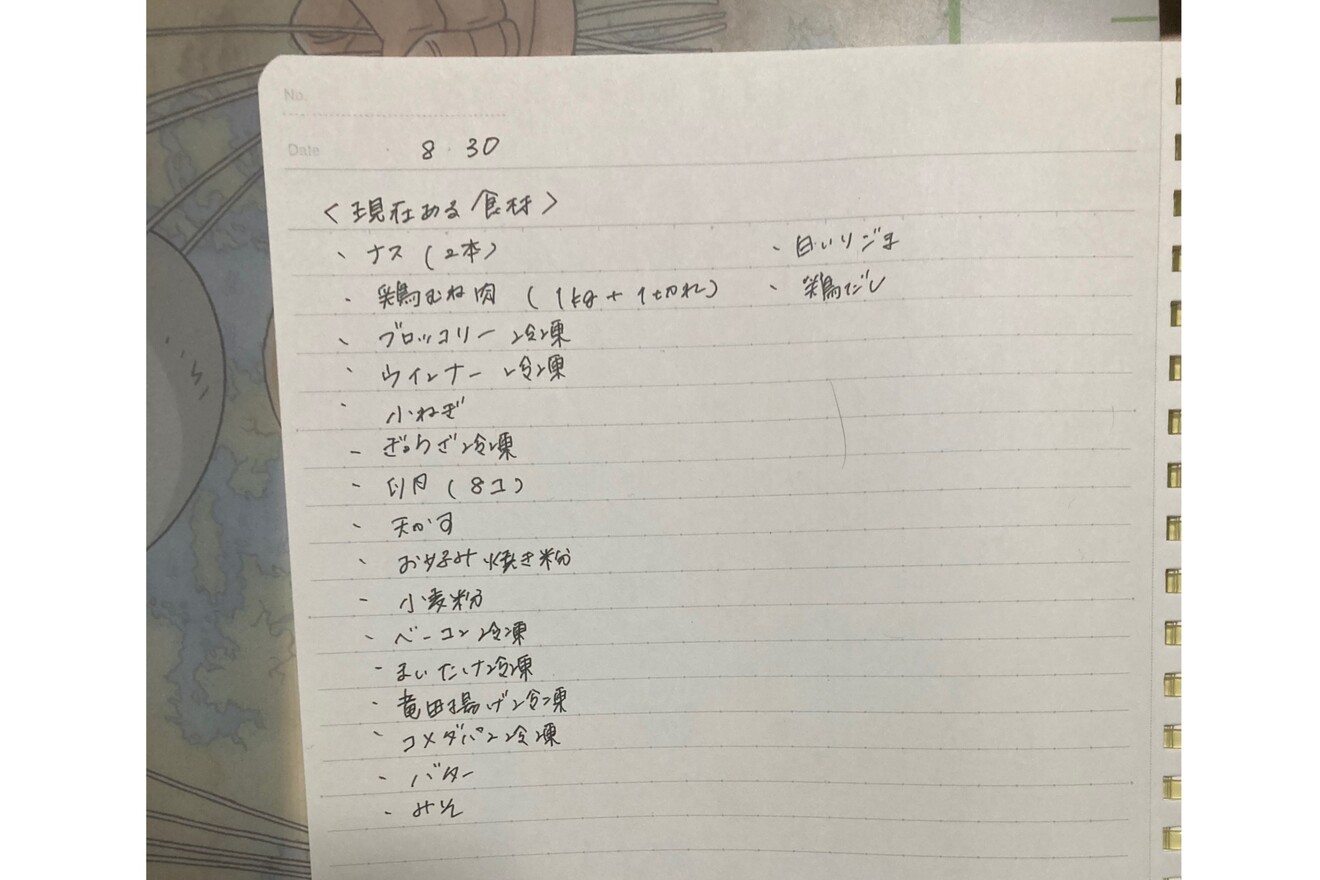 No.
Date 8・30
<現在ある食材>
・ナス (2本)
・鶏むね肉 (1kg + 1切れ)
・ブロッコリー冷凍
・ウインナー冷凍
・小ねぎ
・ぎょうざ冷凍
・卵 (8コ)
・天かす
・お好み焼き粉
・小麦粉
・ベーコン冷凍
・まいたけ冷凍
・竜田揚げ冷凍
・コメダパン冷凍
・バター
・みそ
・白いりごま
・鶏だし